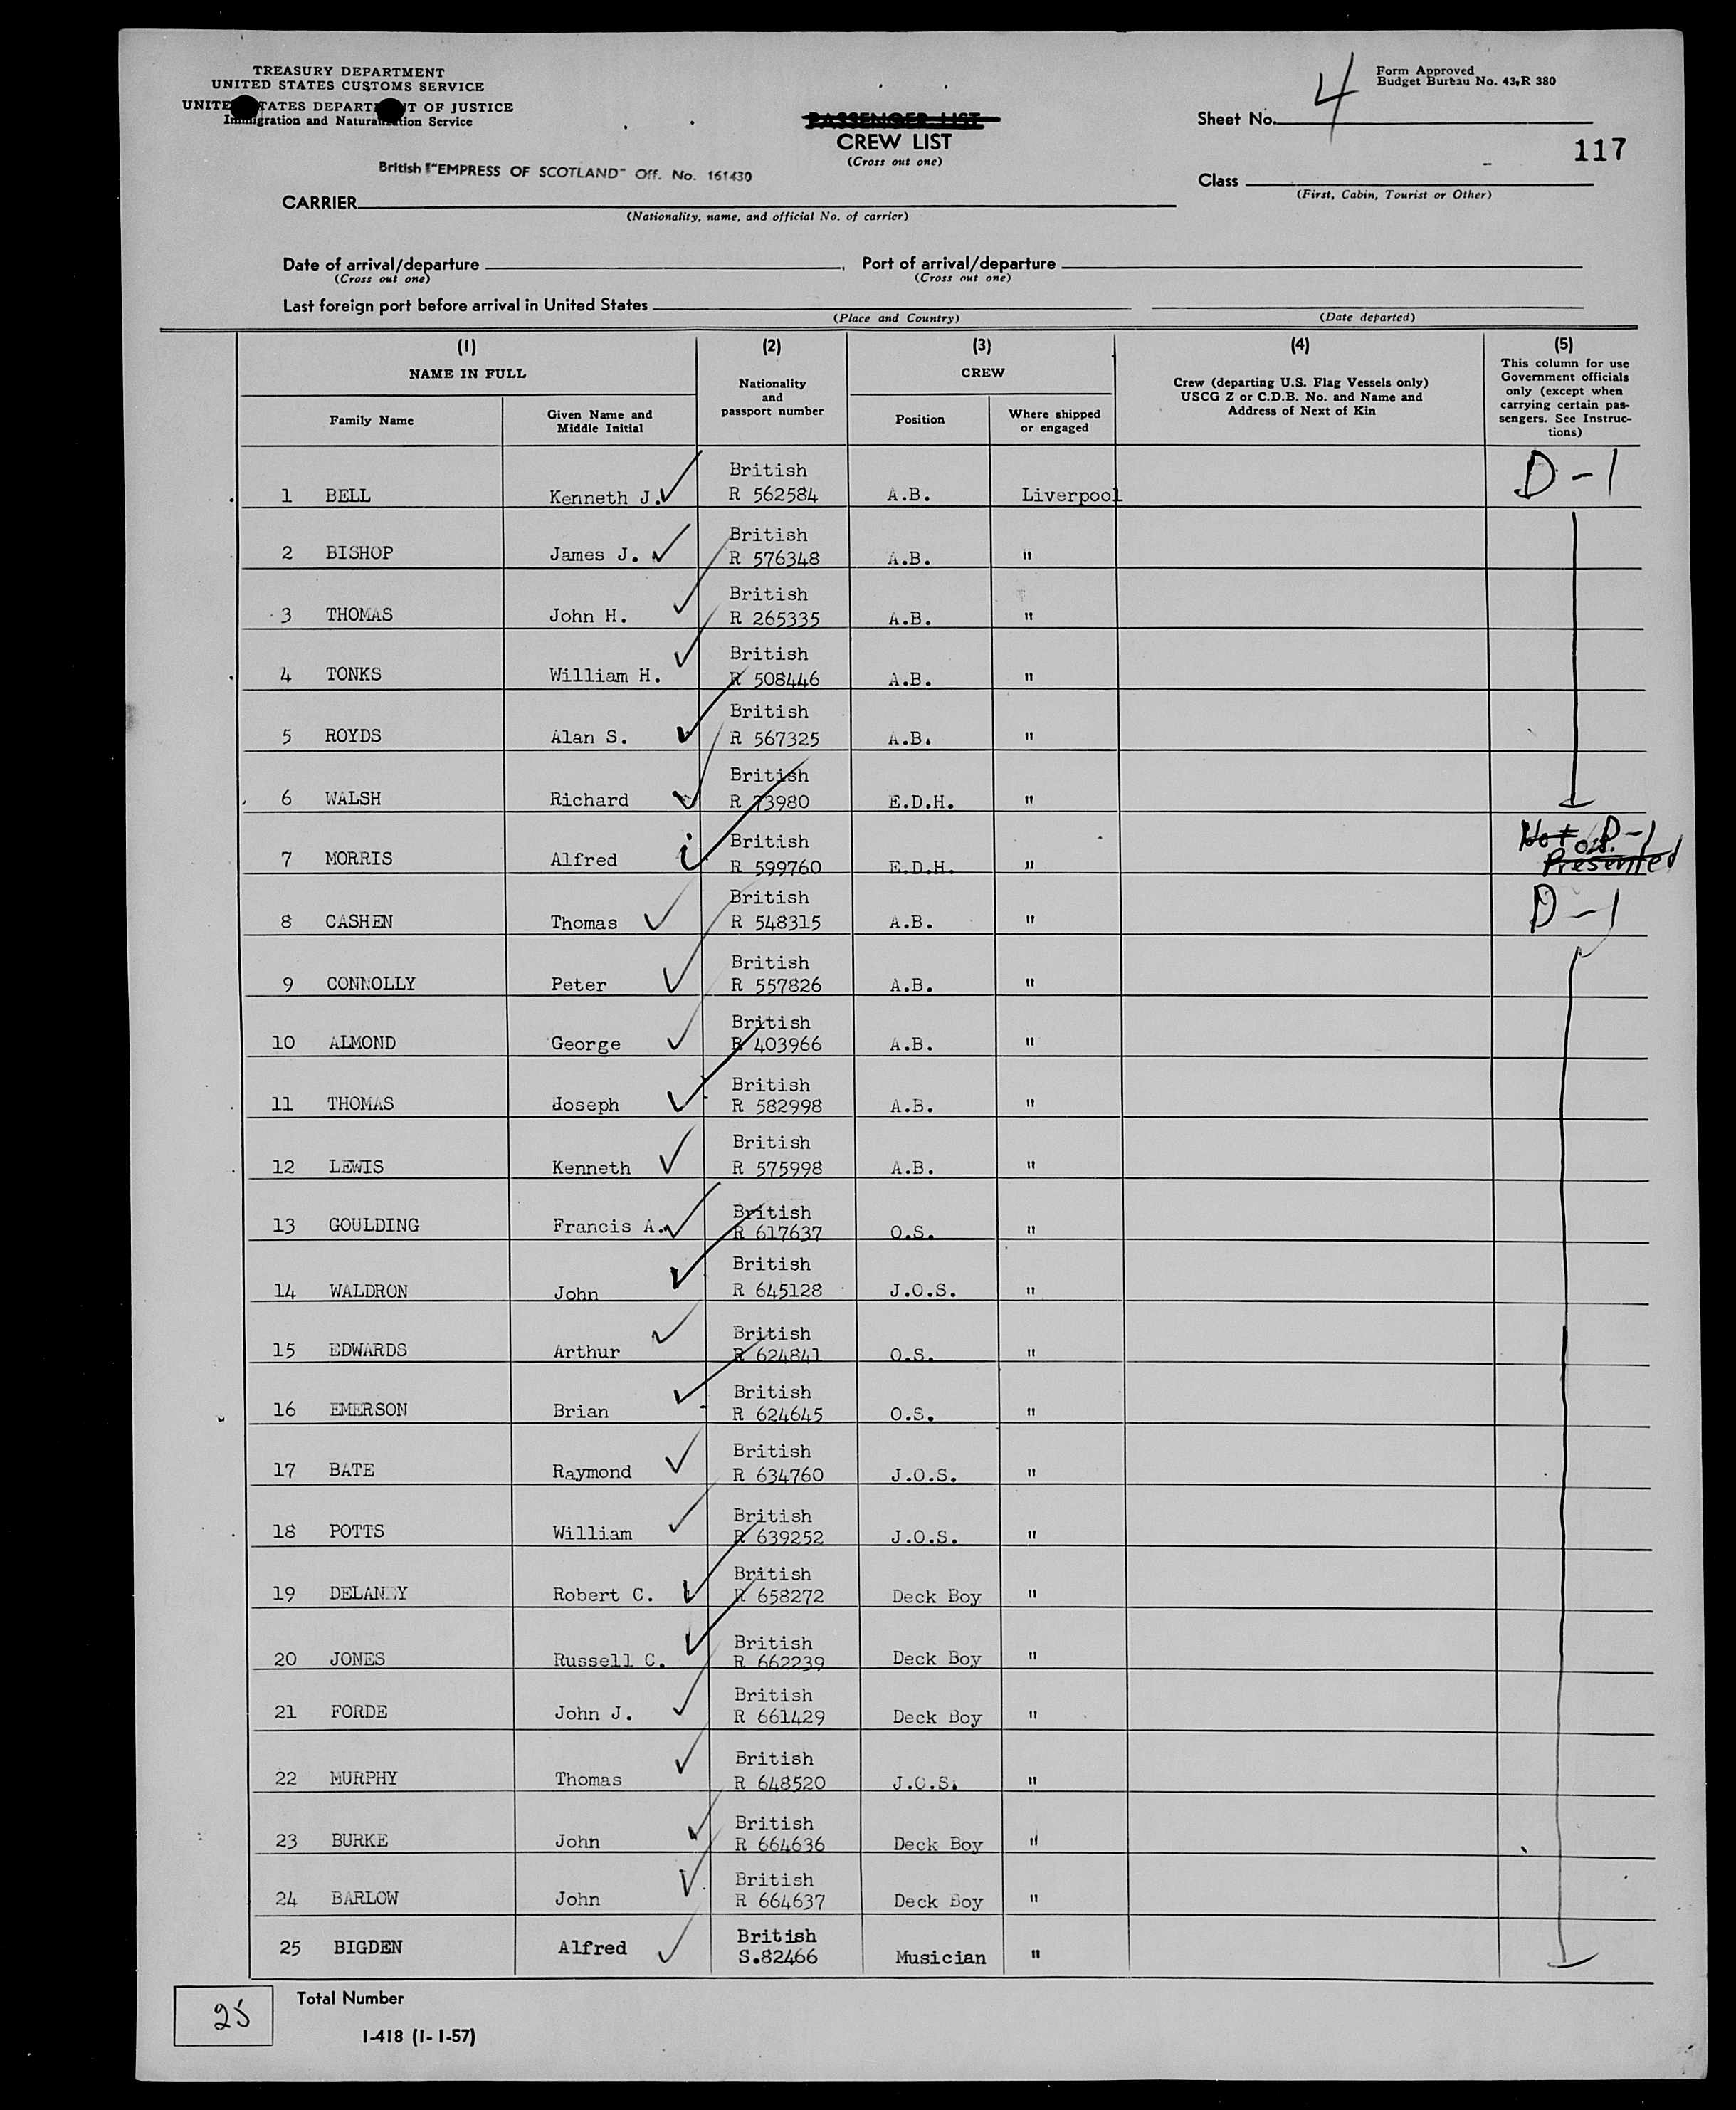 TREASURY DEPARTMENT
UNITED STATES CUSTOMS SERVICE
UNITE TATES DEPART T OF JUSTICE
Immigration and Naturalization Service
PASSENGER LIST
CREW LIST
(Cross out one)
4
Form Approved
Budget Bureau No. 43-R 380
Sheet No.
117
Class
(First, Cabin, Tourist or Other)
British "EMPRESS OF SCOTLAND" Off. No. 161430
CARRIER
(Nationality, name, and official No. of carrier)
Date of arrival/departure , Port of arrival/departure
(Cross out one) (Cross out one)
Last foreign port before arrival in United States
(Place and Country) (Date departed)
(1) (2) (3) (4) (5)
NAME IN FULL
Family Name
Given Name and
Middle Initial
Nationality
and
passport number
CREW
Position
Where shipped
or engaged
Crew (departing U.S. Flag Vessels only)
USCG Z or C.D.B. No. and Name and
Address of Next of Kin
This column for use
Government officials
only (except when
carrying certain pas-
sengers. See Instruc-
tions)
British D-1
1 BELL Kenneth J. R 562584 A.B. Liverpool
British
2 BISHOP James J. R 576348 A.B. "
British
3 THOMAS John H. R 265335 A.B. "
British
4 TONKS William H. R 508446 A.B. "
British
5 ROYDS Alan S. R 567325 A.B. "
British
6 WALSH Richard R 73980 E.D.H. "
British Not D-1
7 MORRIS Alfred R 599760 E.D.H. " Presented
British D-1
8 CASHEN Thomas R 548315 A.B. "
British
9 CONNOLLY Peter R 557826 A.B. "
British
10 ALMOND George R 403966 A.B. "
British
11 THOMAS Joseph R 582998 A.B. "
British
12 LEWIS Kenneth R 575998 A.B. "
British
13 GOULDING Francis A. R 617637 O.S. "
British
14 WALDRON John R 645128 J.O.S. "
British
15 EDWARDS Arthur R 624841 O.S. "
British
16 EMERSON Brian R 624645 O.S. "
British
17 BATE Raymond R 634760 J.O.S. "
British
18 POTTS William R 639252 J.O.S. "
British
19 DELANEY Robert C. R 658272 Deck Boy "
British
20 JONES Russell C. R 662239 Deck Boy "
British
21 FORDE John J. R 661429 Deck Boy "
British
22 MURPHY Thomas R 648520 J.O.S. "
British
23 BURKE John R 664636 Deck Boy "
British
24 BARLOW John R 664637 Deck Boy "
British
25 BIGDEN Alfred S.82466 Musician "
25 Total Number
I-418 (1-1-57)